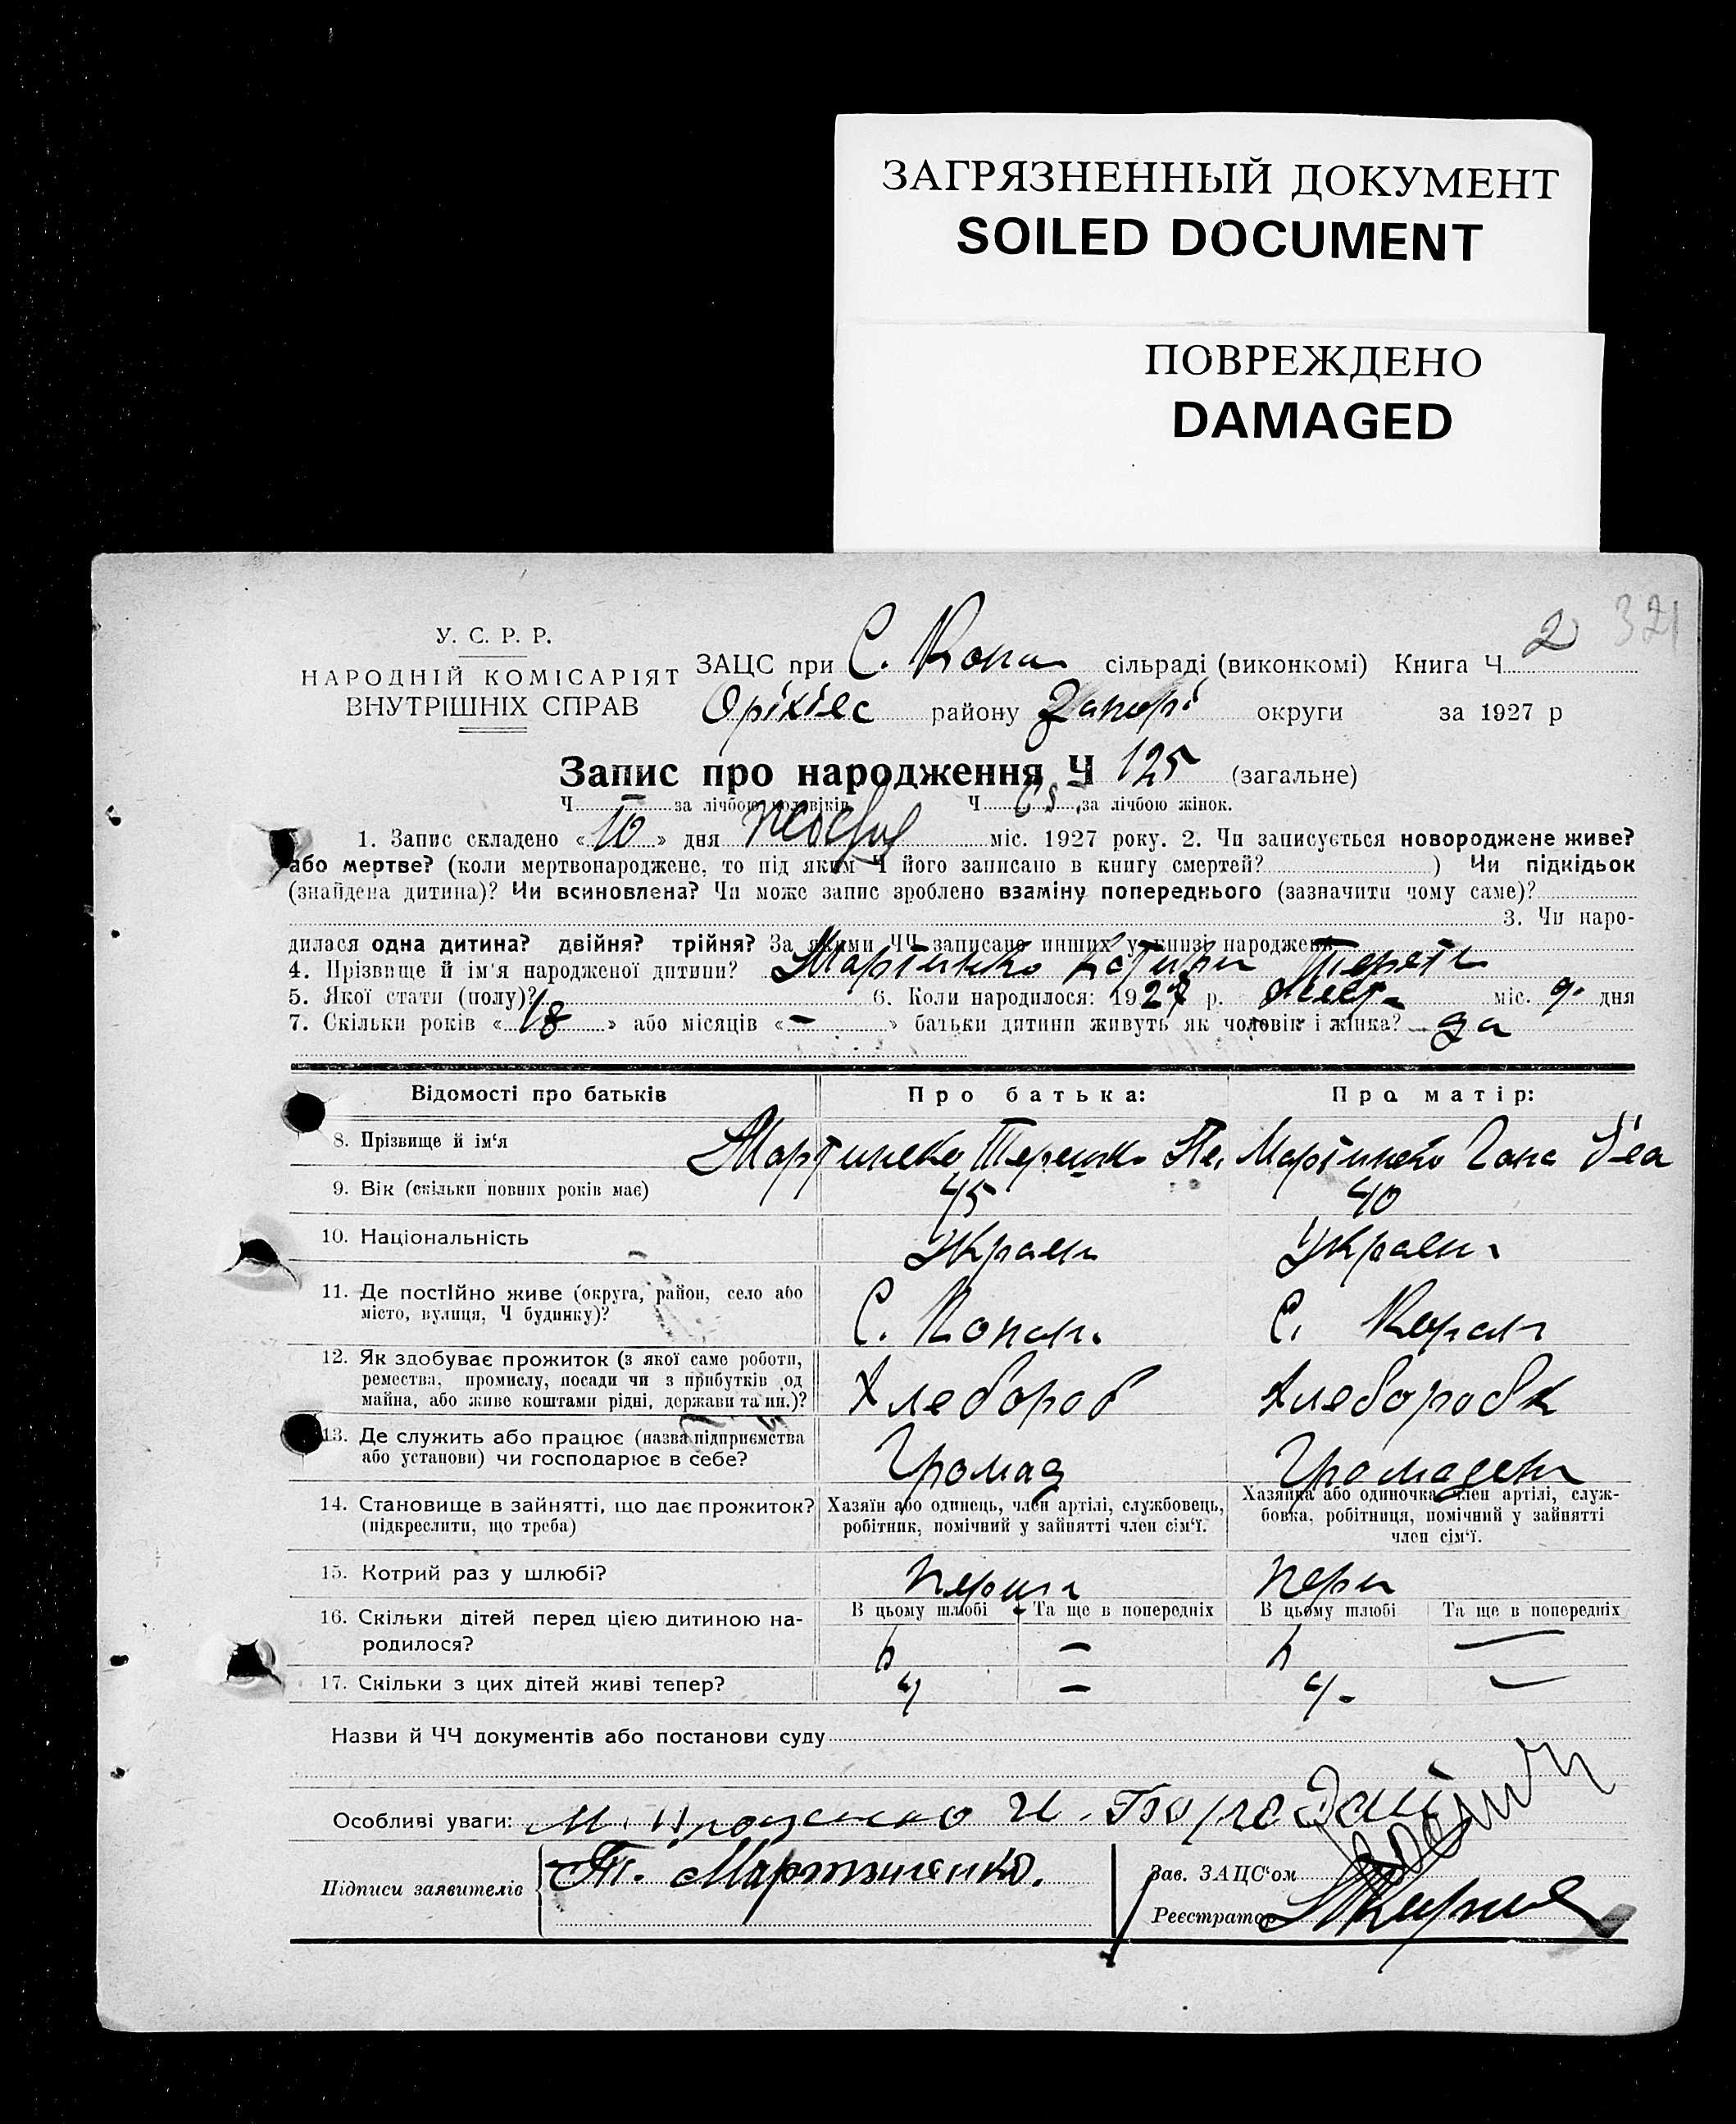 ЗАГРЯЗНЕННЫЙ ДОКУМЕНТ
SOILED DOCUMENT
ПОВРЕЖДЕНО
DAMAGED
321
У. С. Р. Р.
НАРОДНІЙ КОМІСАРІЯТ
ВНУТРІШНІХ СПРАВ
ЗАЦС при С. Копан сільраді (виконкомі) Книга Ч 2
Оріхівс району Запорі округи за 1927 р
Запис про народження Ч 125 (загальне)
Ч за лічбою чоловіків Ч за лічбою жінок.
1. Запис складено « 10 » дня міс. 1927 року. 2. Чи записується новороджене живе?
або мертве? (коли мертвонароджене, то під яким Ч його записано в книгу смертей? ) Чи підкідьок
(знайдена дитина)? Чи всиновлена? Чи може запис зроблено взаміну попереднього (зазначити чому саме)?
3. Чи наро-
дилася одна дитина? двійня? трійня? За якими ЧЧ записано инших у книзі народжень
4. Прізвище й ім'я народженої дитини? Мартиненко
5. Якої стати (полу)? 6. Коли народилося: 1927 р. міс. 9 дня
7. Скільки років « 18 » або місяців « - » батьки дитини живуть як чоловік і жінка? да
Відомості про батьків Про батька: Про матір:
8. Прізвище й ім'я Мартиненко Терешко Мартиненко
9. Вік (скільки повних років має) 45 40
10. Національність Украин Украин.
11. Де постійно живе (округа, район, село або
місто, вулиця, Ч будинку)? С. Копан. С. Копан
12. Як здобуває прожиток (з якої саме роботи,
ремества, промислу, посади чи з прибутків од
майна, або живе коштами рідні, держави та ин.)? Хлебороб Хлеборобк
13. Де служить або працює (назва підприємства
або установи) чи господарює в себе? Громад Громаден
14. Становище в зайнятті, що дає прожиток? Хазяїн або одинець, член артілі, службовець, Хазяйка або одиночка, член артілі, служ-
(підкреслити, що треба) робітник, помічний у зайнятті член сім'ї. бовка, робітниця, помічний у зайнятті
член сім'ї.
15. Котрий раз у шлюбі? перши перш
16. Скільки дітей перед цією дитиною на- В цьому шлюбі Та ще в попередніх В цьому шлюбі Та ще в попередніх
родилося? – –
17. Скільки з цих дітей живі тепер? 4 – 4 –
Назви й ЧЧ документів або постанови суду
Особливі уваги:
Підписи заявителів Т. Мартыненко. Зав. ЗАЦС'ом
Реєстратор